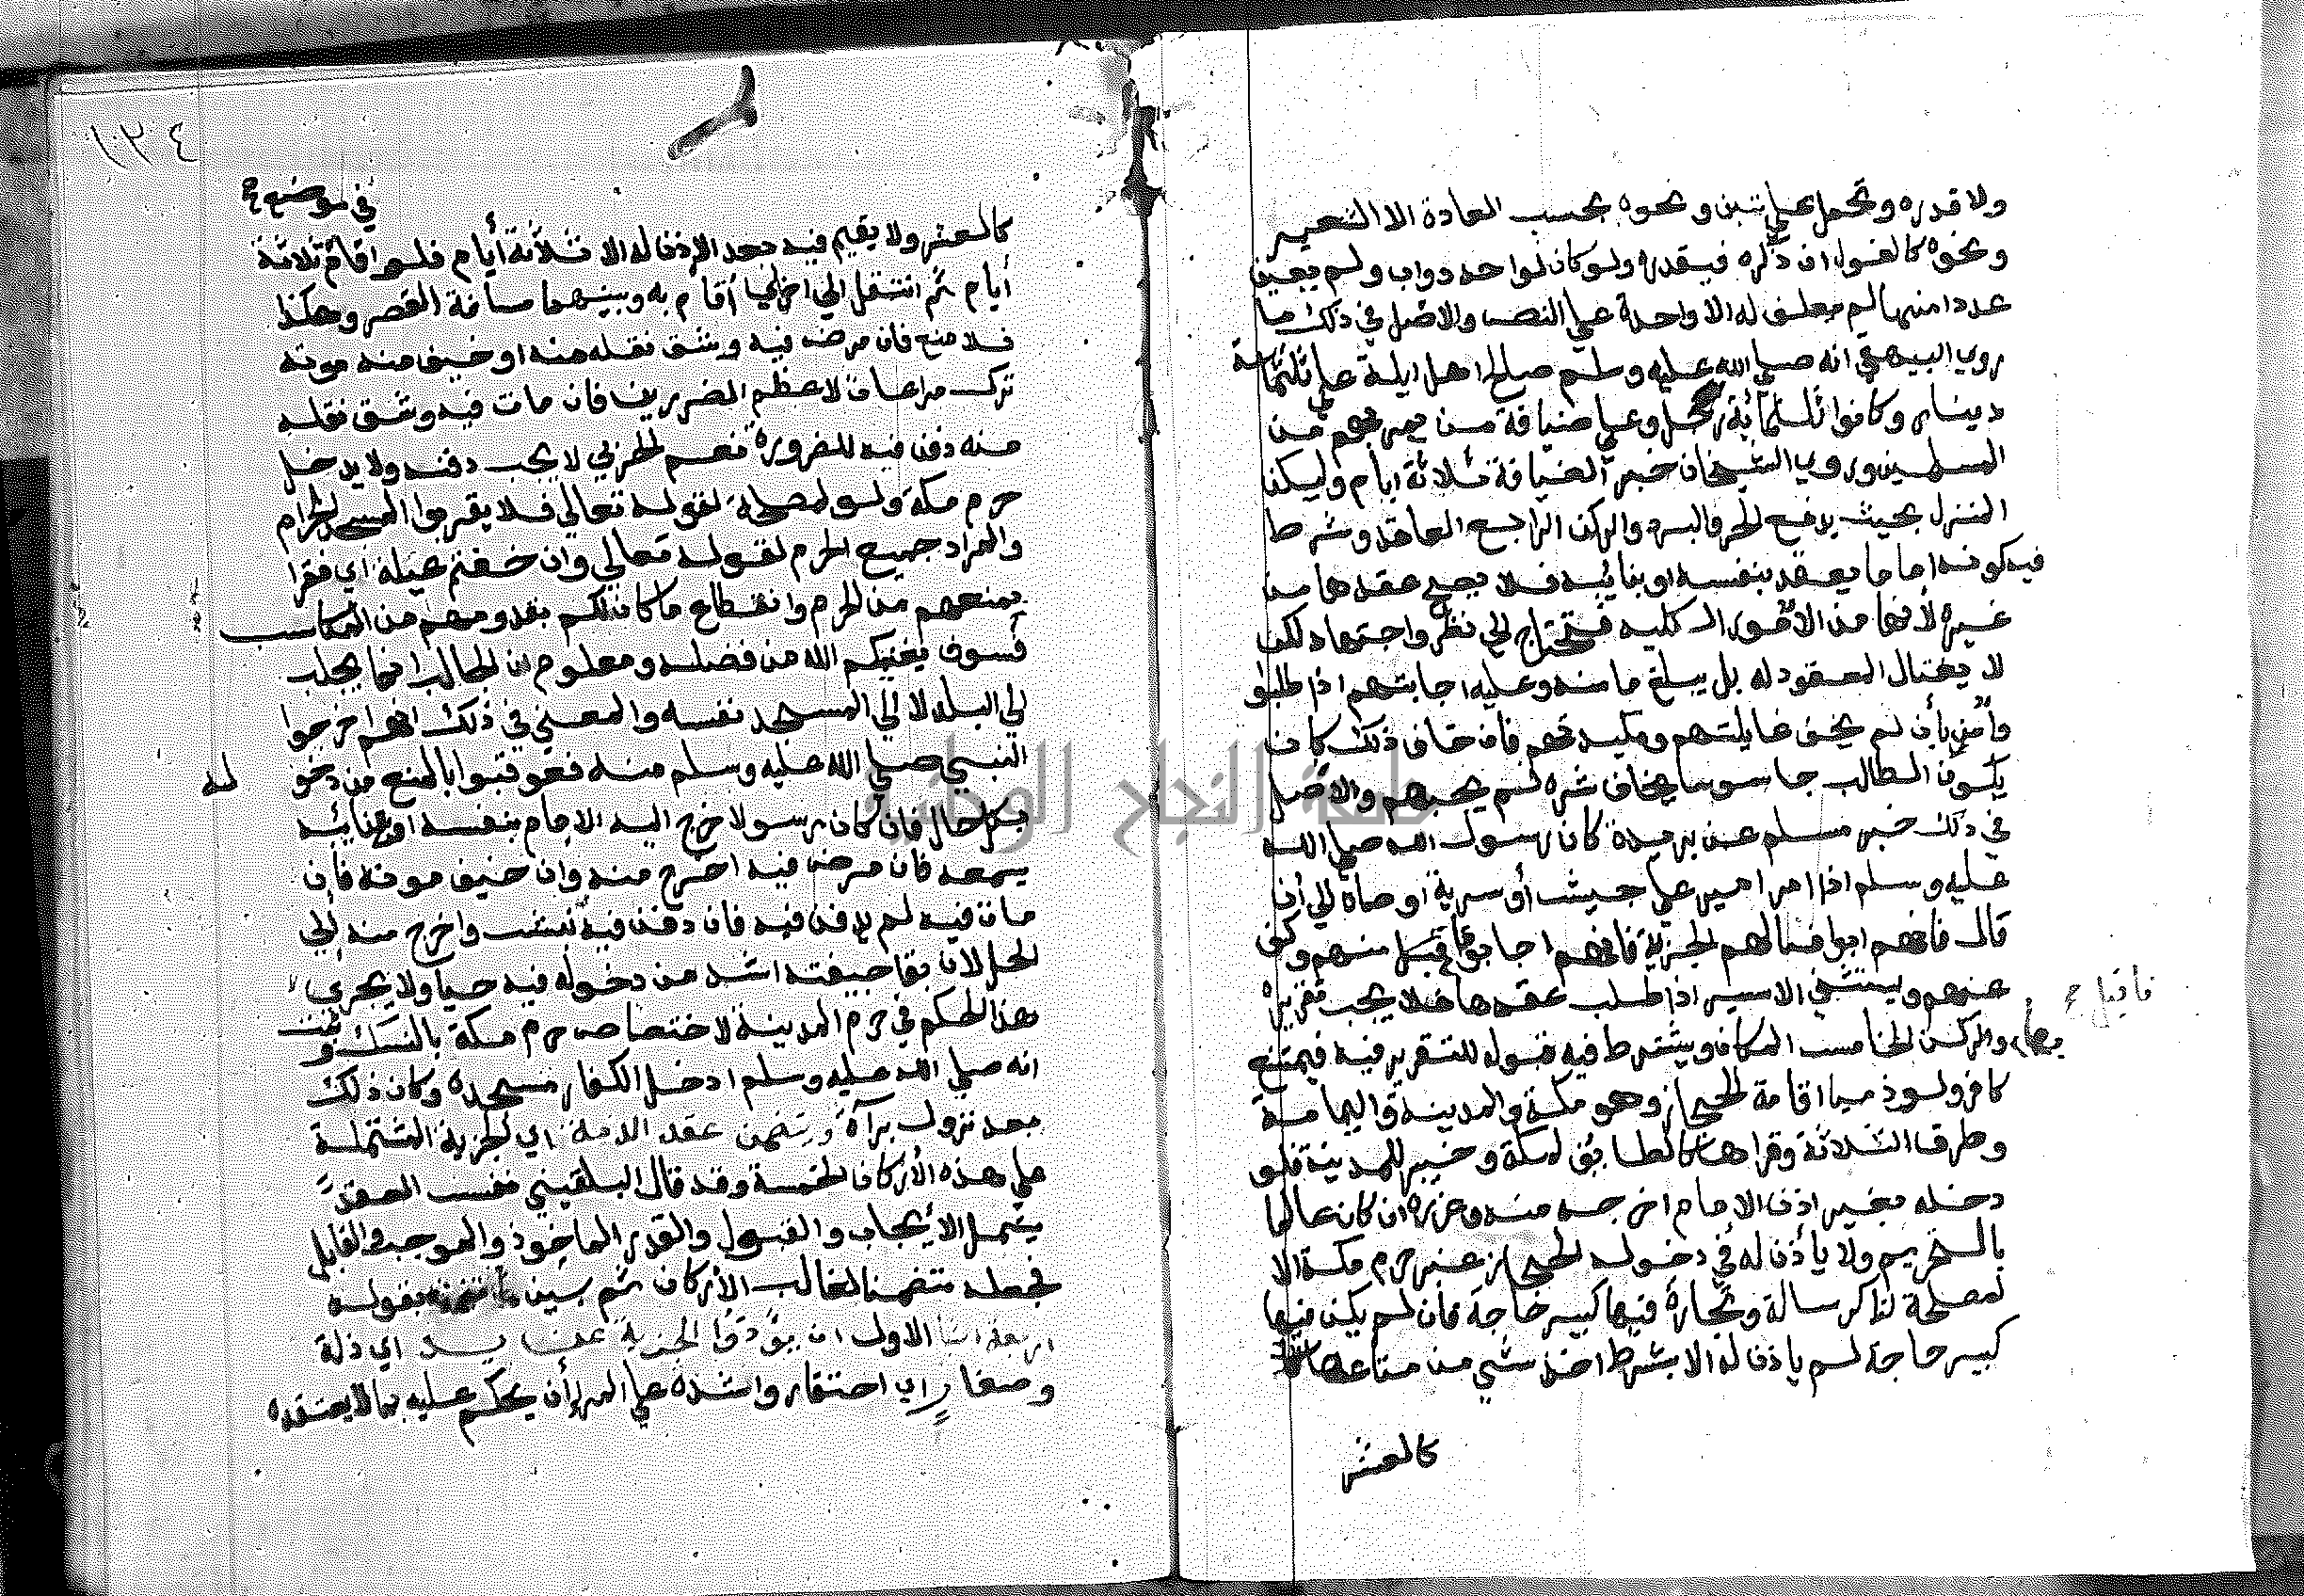 ولا قدره وتحمل علي تبن ونحوه بحسب العادة الا الشعير
ونحوه كالفول ان ذكره فيقدره ولو كان لواحد دواب ولم يعين
عددا منها لم يعلف له الا واحدة علي النص والاصل في ذلك ما
روي البيهقي انه صلي الله عليه وسلم صالح اهل ايلة علي ثلثماية
دينار وكانوا ثلثماية رجل وعلي ضيافة من يمر بهم من
المسلمين وروي الشيخان خبر الضيافة ثلاثة ايام وليكن
المنزل بحيث يدفع الحر والبرد والركن الرابع العاقد وشرط
فيه كونه اماما يعقد بنفسه او بنائبه فلا يصح عقدها من
غيره لأنها من الأمور الكلية فتحتاج الي نظر واجتهاد لكن
لا يغتال المعقود له بل يبلغ مامنه وعليه اجابتهم اذا طلبوا
وأمن بأن لم يخف غايلتهم ومكيدتهم فان خاف ذلك كان
يكون الطالب جاسوسا يخاف شره لم يجبهم والاصل
في ذلك خبر مسلم عن بريدة كان رسول الله صلي الله
عليه وسلم اذا امر امير علي جيش أو سرية اوصاه الي أن
قال فانهم ابوا فسالهم الجزية فانهم اجابوا فاقبل منهم وكف
عنهم ويستثني الاسير اذا طلب عقدها فلا يجب تقريره
فاقبل ج
بها والركن الخامس المكان ويشترط فيه قبوله للتقرير فيه فيمتنع
كافر ولو ذميا اقامة الحجاز وهو مكة والمدينة واليمامة
وطرق الثلاثة وقراها كالطايف لمكة وخيبر للمدينة فلو
دخله بغير اذن الامام اخرجه منه وعزره ان كان عالما
بالتحريم ولا يأذن له في دخوله الحجاز غير حرم مكة الا
لمصلحة لنا كرسالة وتجارة فيها كبير حاجة فان لم يكن فيها
كبير حاجة لم ياذن له الا بشرط اخذ شي من متاعها
كالعشر
١٠٢٤
في موضع ج
كالعشر ولا يقيم فيه بعد الإذن له الا ثلاثة أيام فلو اقام ثلاثة
أيام ثم انتقل الي اخر أقام به وبينهما مسافة القصر وهكذا
فلا منع فان مرض فيه وشق نقله منه او خيف منه موته
ترك مراعاة لاعظم الضررين فان مات فيه وشق نقله
منه دفن فيه للضرورة نعم الحربي لا يجب دفنه ولا يدخل
حرم مكة ولو لمصلحة لقوله تعالي فلا يقربوا المسجد الحرام
والمراد جميع الحرم لقوله تعالي وان خفتم عيلة اي فقرا
بمنعهم من الحرم وانقطاع ما كان لكم بقدومهم من المكاسب
فسوف يغنيكم الله من فضله ومعلوم ان الجالب انما يجلب
الي البلد لا الي المسجد نفسه والمعني في ذلك انهم اخرجوا
النبي صلي الله عليه وسلم منه فعوقبوا بالمنع من دخو له
بكل حال فان كان رسولا خرج اليه الامام بنفسه او نائبه
يسمعه فان مرض فيه اخرج منه وان خيف موته فان
مات فيه لم يدفن فيه فان دفن فيه نبش واخرج منه الي
الحل لان بقا جيفته اشد من دخوله فيه حيا ولا يجري
هذا الحكم في حرم المدينة لاختصاص حرم مكة بالنسك وثبت
انه صلي الله عليه وسلم ادخل الكفار مسجده وكان ذلك
بعد نزول برآة وتضمن عقد الذمة اي الجزية المشتملة
علي هذه الأركان الخمسة وقد قال البلقيني نفس العقد
يشمل الأيجاب والقبول والقدر الماخوذ والموجب والقابل
فجعله متضمنا لغالب الأركان ثم بين بقوله
اربعة اشيا الاول ان يؤدوا الجزية عن يد اي ذلة
وصغار اي احتقار واشده علي المرأ أن يحكم عليه بما لا يعتقده